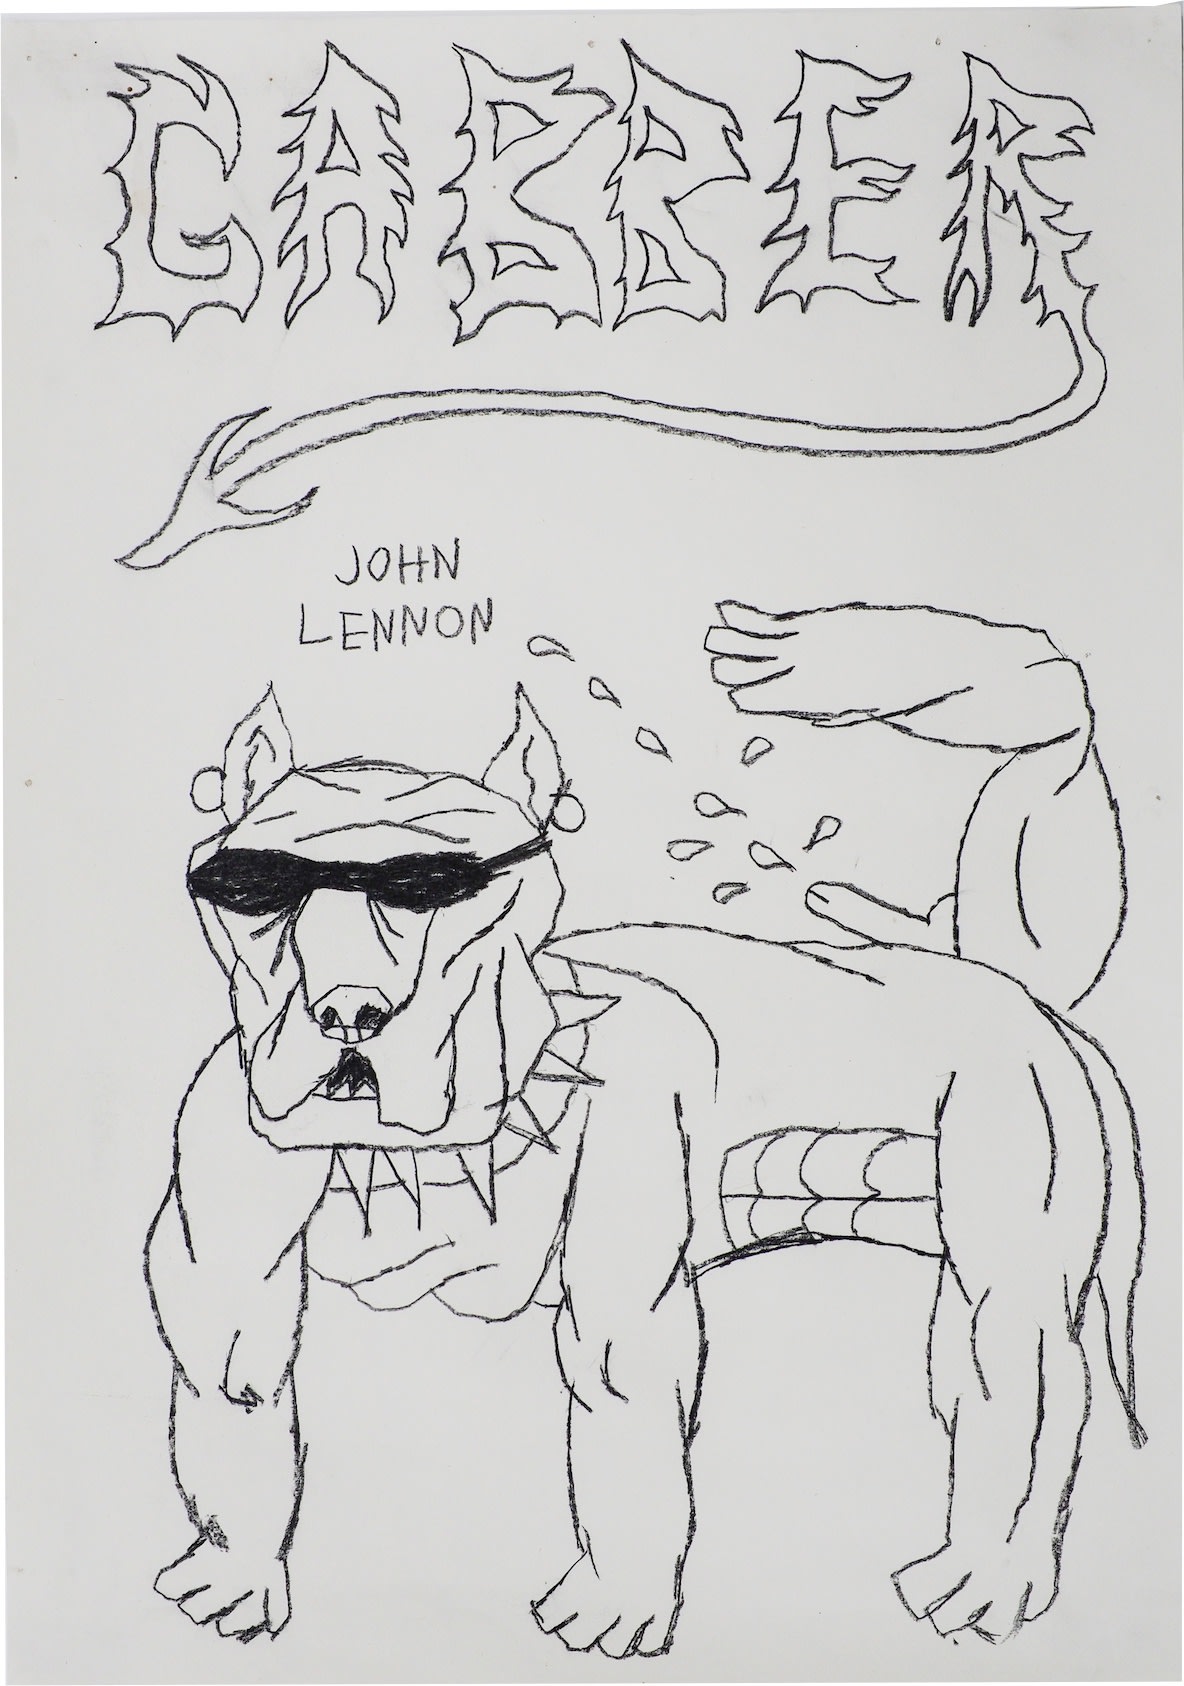 GABBER
JOHN
LENNON